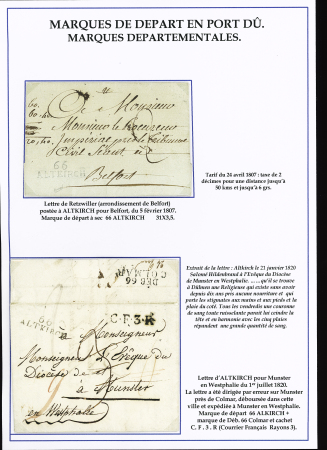 MARQUES DE DEPART EN PORT DÛ.
MARQUES DEPARTEMENTALES.
A Monsieur
Monsieur le Procureur
Impérial près le Tribunal
Civil Séant à
66
ALTKIRCH
Belfort
Tarif du 24 avril 1807 : taxe de 2
décimes pour une distance jusqu'à
50 kms et jusqu'à 6 grs.
Lettre de Retzwiller (arrondissement de Belfort)
postée à ALTKIRCH pour Belfort, du 5 février 1807.
Marque de départ à sec 66 ALTKIRCH 31X3,5.
DEB 66
COLMAR
C.F.3.R
66
ALTKIRCH
A Monseigneur
Monseigneur l'Evêque du
Diocèse de Munster
à Munster
en Westphalie
Extrait de la lettre : Altkirch le 21 janvier 1820
Salomé Hildenbrand à l'Evêque du Diocèse
de Munster en Westphalie. ..... qu'il se trouve
à Dülmen une Religieuse qui existe sans avoir
depuis dix ans pris aucune nourriture et qui
porte les stigmates aux mains et aux pieds et la plaie
du coté. Tous les vendredis une couronne
de sang toute ruisselante parait lui ceindre la
tête et en harmonie avec les cinq plaies
répandent une grande quantité de sang.
Lettre d'ALTKIRCH pour Munster
en Westphalie du 1er juillet 1820.
La lettre a été dirigée par erreur sur Munster
près de Colmar, déboursée dans cette
ville et expédiée à Munster en Westphalie.
Marque de départ 66 ALTKIRCH +
marque de Déb. 66 Colmar et cachet
C. F . 3 . R (Courrier Français Rayons 3).